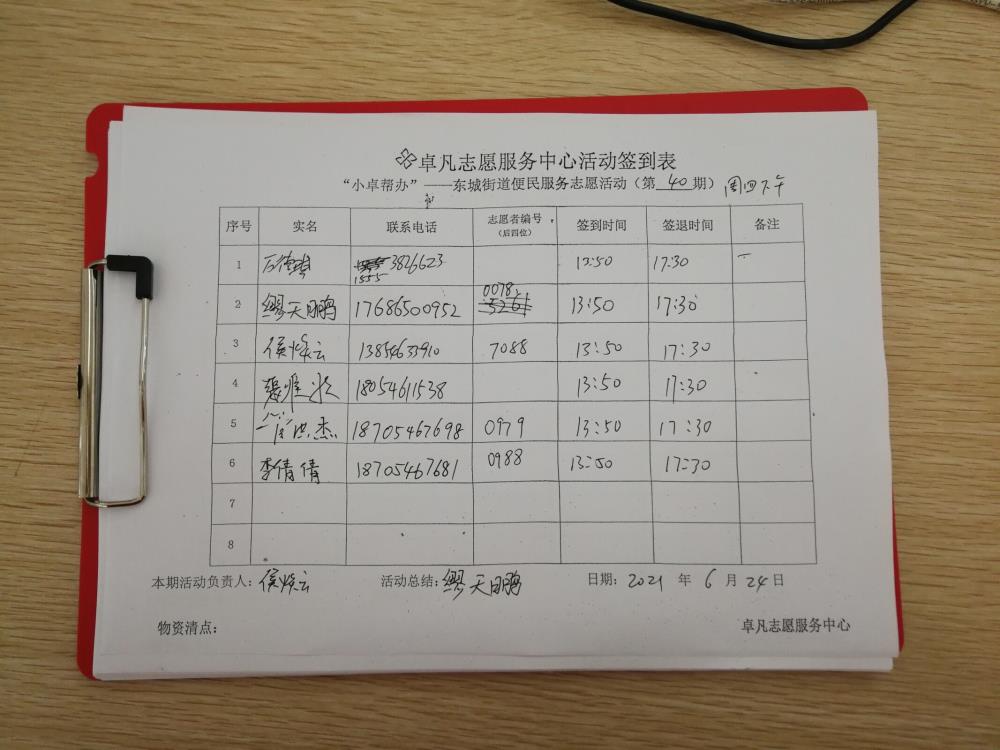 卓凡志愿服务中心活动签到表
“小卓帮办”——东城街道便民服务志愿活动（第 40 期） 周四下午
序号 实名 联系电话 志愿者编号（后四位） 签到时间 签退时间 备注
1 1555 3826623 13:50 17:30
2 缪天鹏 17686500952 0078 13:50 17:30
3 侯焕云 13854633910 7088 13:50 17:30
4 18054611538 13:50 17:30
5 洪杰 18705467698 0979 13:50 17:30
6 李倩倩 18705467681 0988 13:50 17:30
7
8
本期活动负责人：侯焕云 活动总结：缪天鹏 日期：2021 年 6 月 24 日
物资清点： 卓凡志愿服务中心